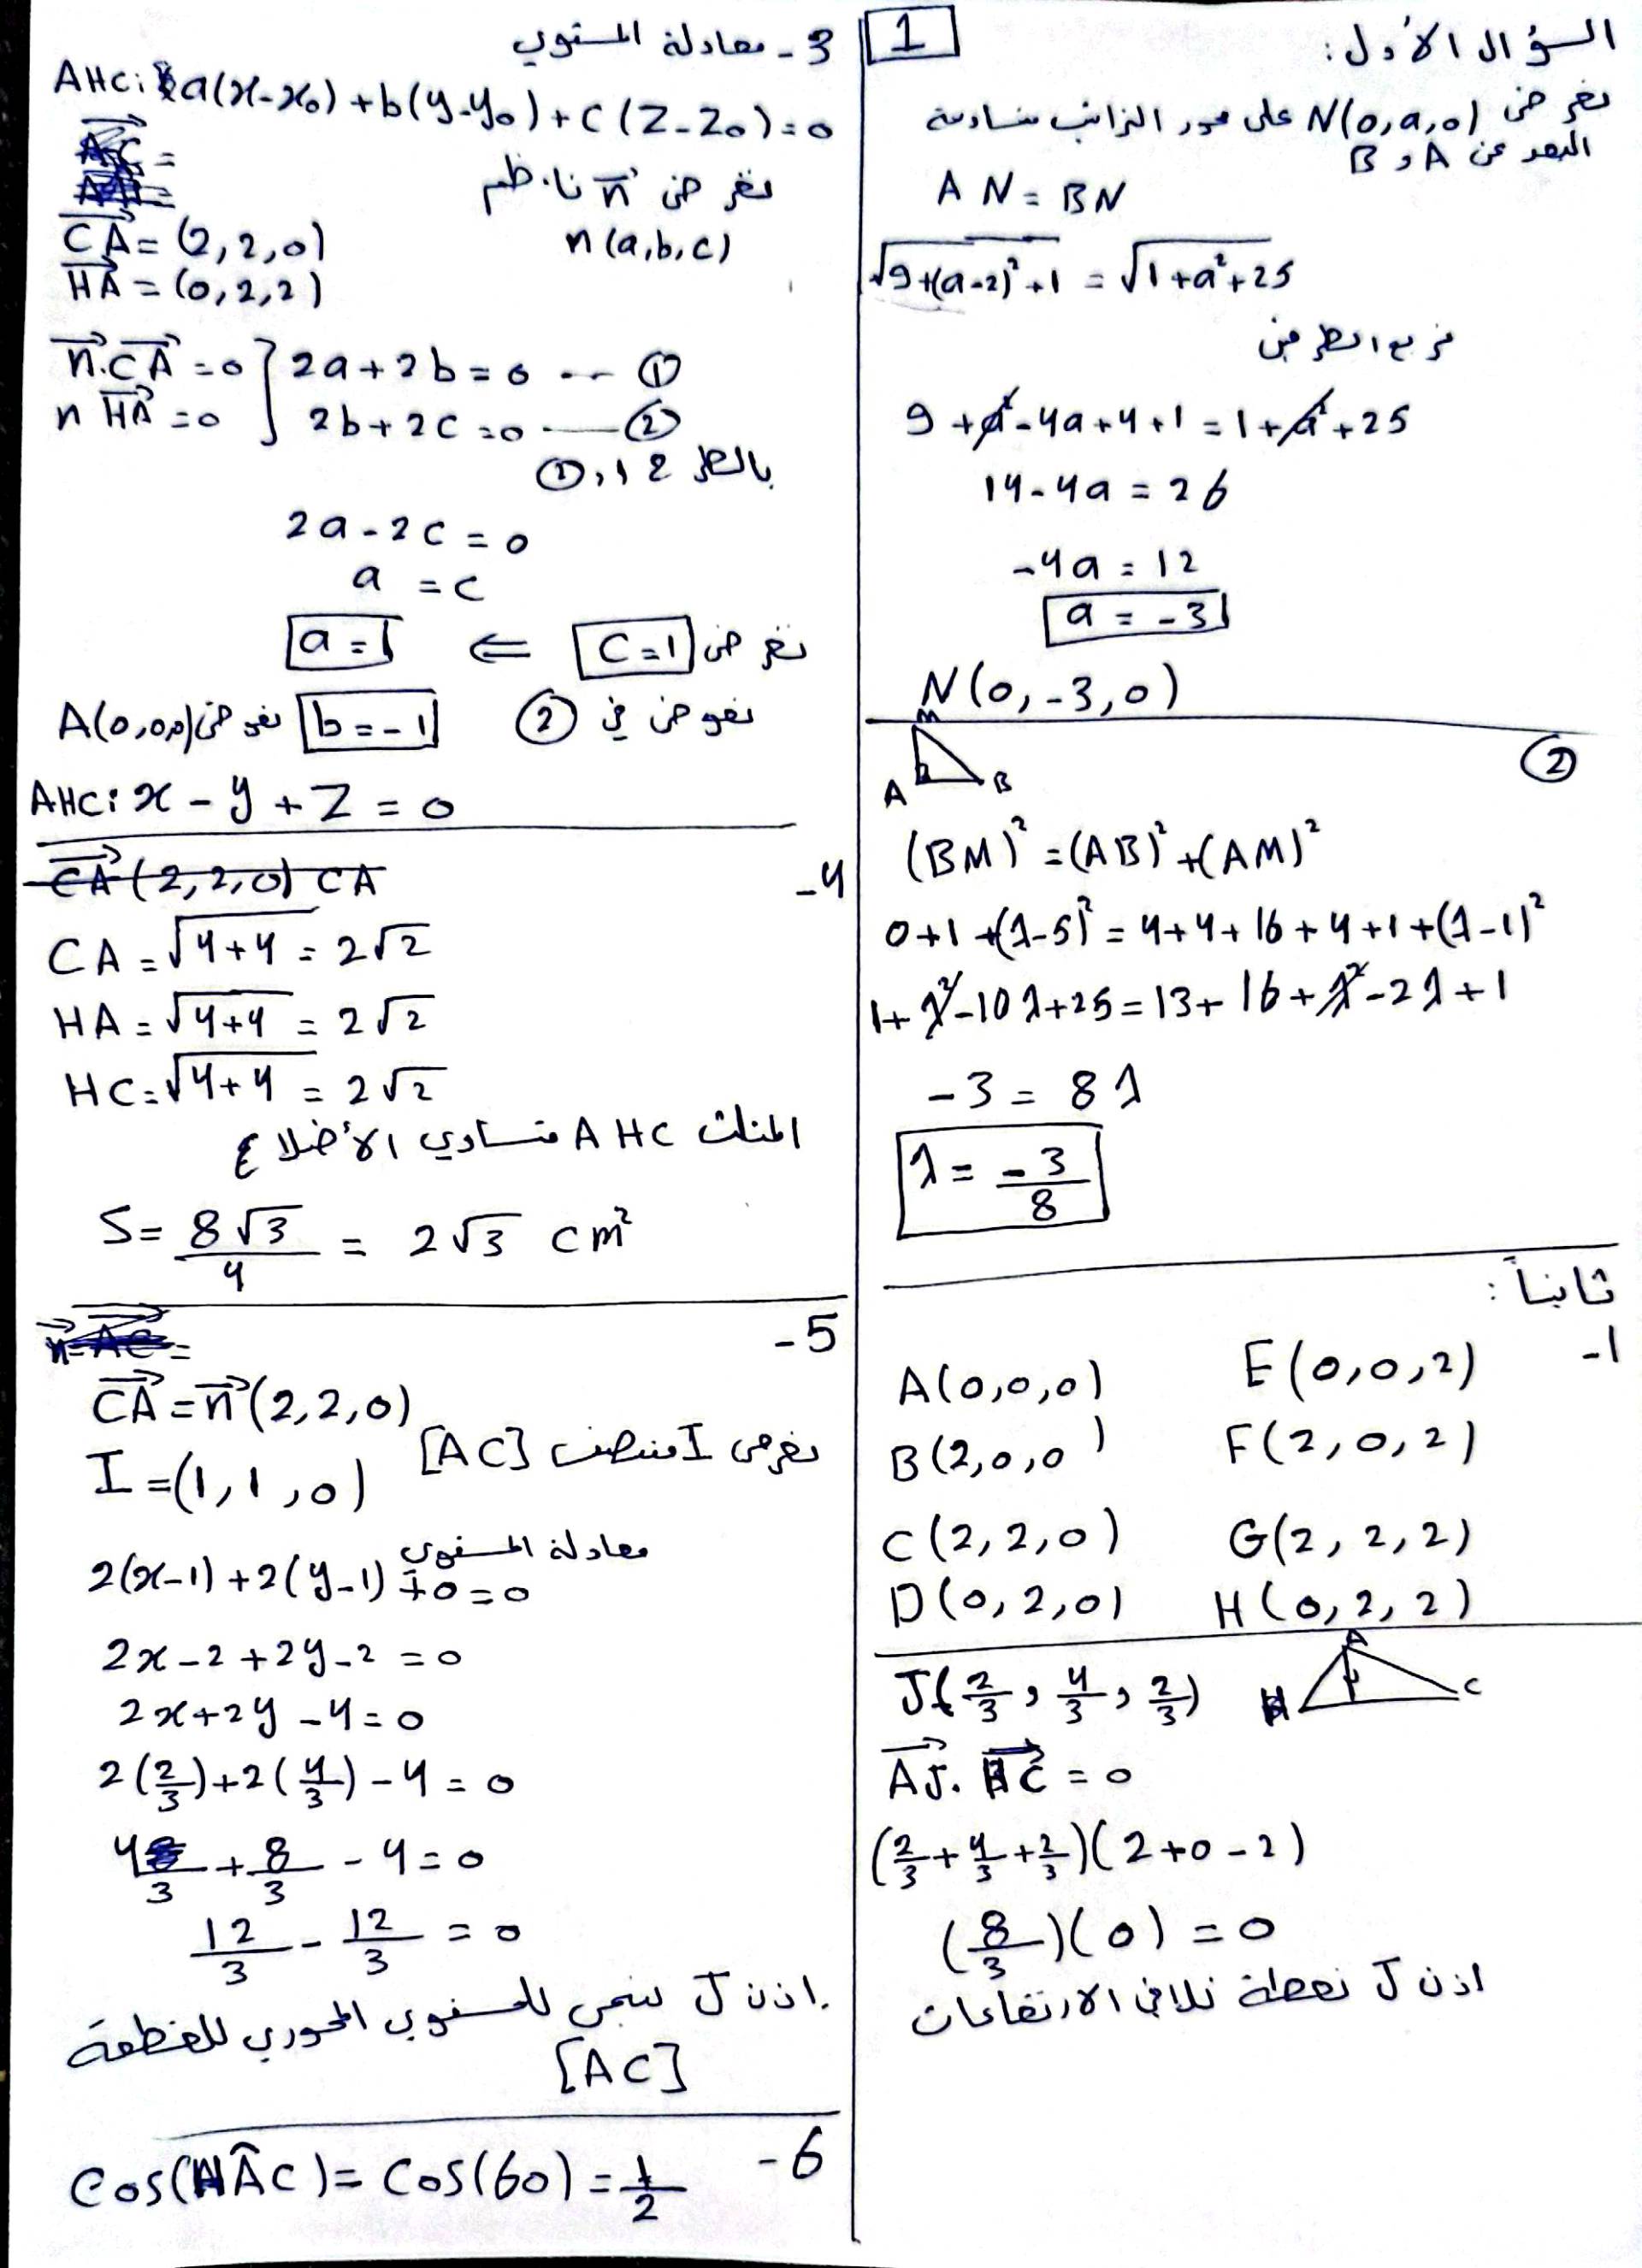 1
السؤال الأول:
نفرض N(0,a,0) على محور التراتيب متساوية
البعد عن A و B
AN = BN
√9+(a-2)²+1 = √1+a²+25
نربع الطرفين
9+a²-4a+4+1 = 1+a²+25
14-4a = 26
-4a = 12
a = -3
N(0,-3,0)
②
M
A B
(BM)² = (AB)² + (AM)²
0+1+(λ-5)² = 4+4+16+4+1+(λ-1)²
1+λ²-10λ+25 = 13+16+λ²-2λ+1
-3 = 8λ
λ = -3/8
ثانياً:
-1
A(0,0,0) E(0,0,2)
B(2,0,0) F(2,0,2)
C(2,2,0) G(2,2,2)
D(0,2,0) H(0,2,2)
J(2/3, 4/3, 2/3) A H C
AJ. HC = 0
(2/3+4/3+2/3)(2+0-2)
(8/3)(0) = 0
اذن J نقطة تلاقي الارتفاعات
3- معادلة المستوي
AHC: a(x-x₀)+b(y-y₀)+c(z-z₀)=0
AC =
نفرض n ناظم
CA = (2,2,0) n(a,b,c)
HA = (0,2,2)
n.CA = 0 } 2a+2b=0 -- ①
n HA = 0 } 2b+2c=0 — ②
بالطرح 2 و ①
2a-2c = 0
a = c
نفرض c=1 ⇐ a=1
نعوض في ② b=-1 نعوض A(0,0,0)
AHC: x-y+z = 0
-4
CA(2,2,0) CA
CA = √4+4 = 2√2
HA = √4+4 = 2√2
HC = √4+4 = 2√2
المثلث AHC متساوي الأضلاع
S = 8√3/4 = 2√3 cm²
-5
n=AC=
CA = n(2,2,0)
نفرض I منتصف [AC]
I = (1,1,0)
معادلة المستوي
2(x-1)+2(y-1)+0=0
2x-2+2y-2 = 0
2x+2y-4=0
2(2/3)+2(4/3)-4 = 0
4/3+8/3-4=0
12/3-12/3 = 0
اذن J تنتمي للمستوي المحوري للقطعة
[AC]
-6
Cos(HÂC) = Cos(60) = 1/2